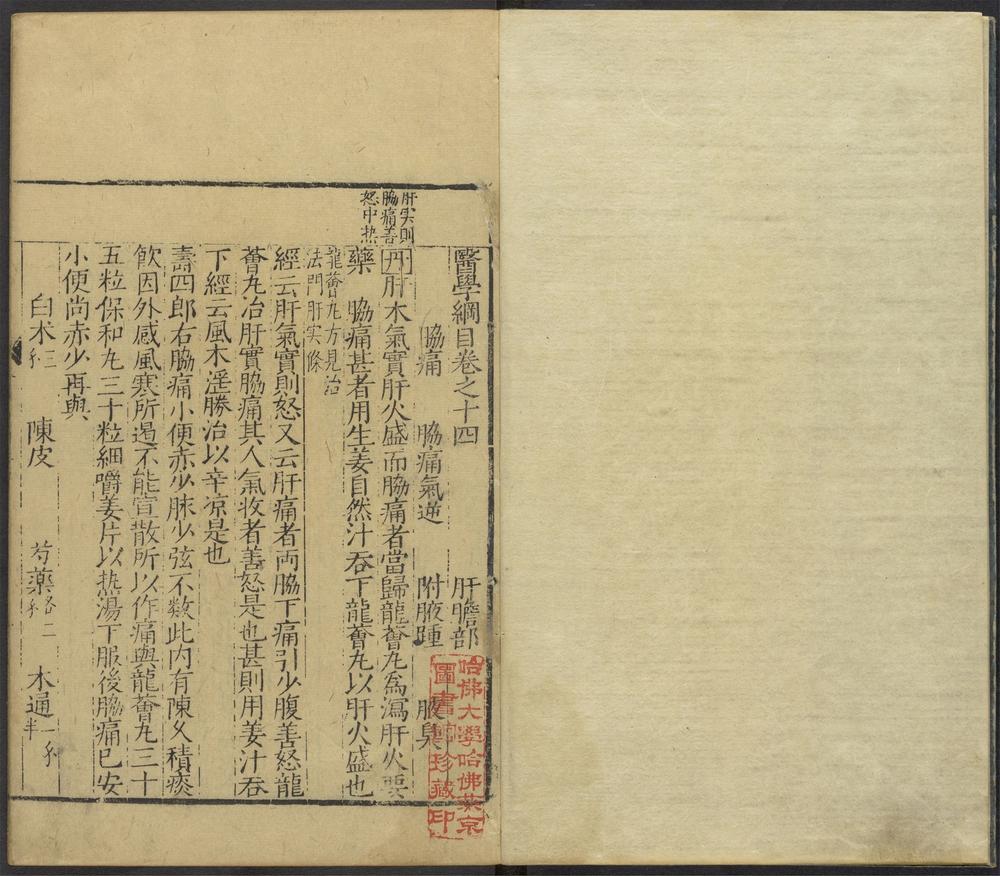 肝实則
脇痛善
怒中热
醫學綱目卷之十四
肝膽部
脇痛　脇痛氣逆　附腋踵　腋臭
丹肝木氣實肝火盛而脇痛者當歸龍薈丸為瀉肝火要
藥　脇痛甚者用生姜自然汁吞下龍薈丸以肝火盛也
龍薈丸方見治
法門肝实條
經云肝氣實則怒又云肝痛者両脇下痛引少腹善怒龍
薈丸治肝實脇痛其人氣收者善怒是也甚則用姜汁吞
下經云風木淫勝治以辛凉是也
壽四郎右脇痛小便赤少脉少弦不数此内有陳久積痰
飲因外感風寒所遏不能宣散所以作痛與龍薈丸三十
五粒保和丸三十粒細嚼姜片以热湯下服後脇痛已安
小便尚赤少再與
白术三𠆤　陳皮　芍藥各二𠆤　木通一𠆤半
哈佛大學哈佛燕京
圖書館珍藏印